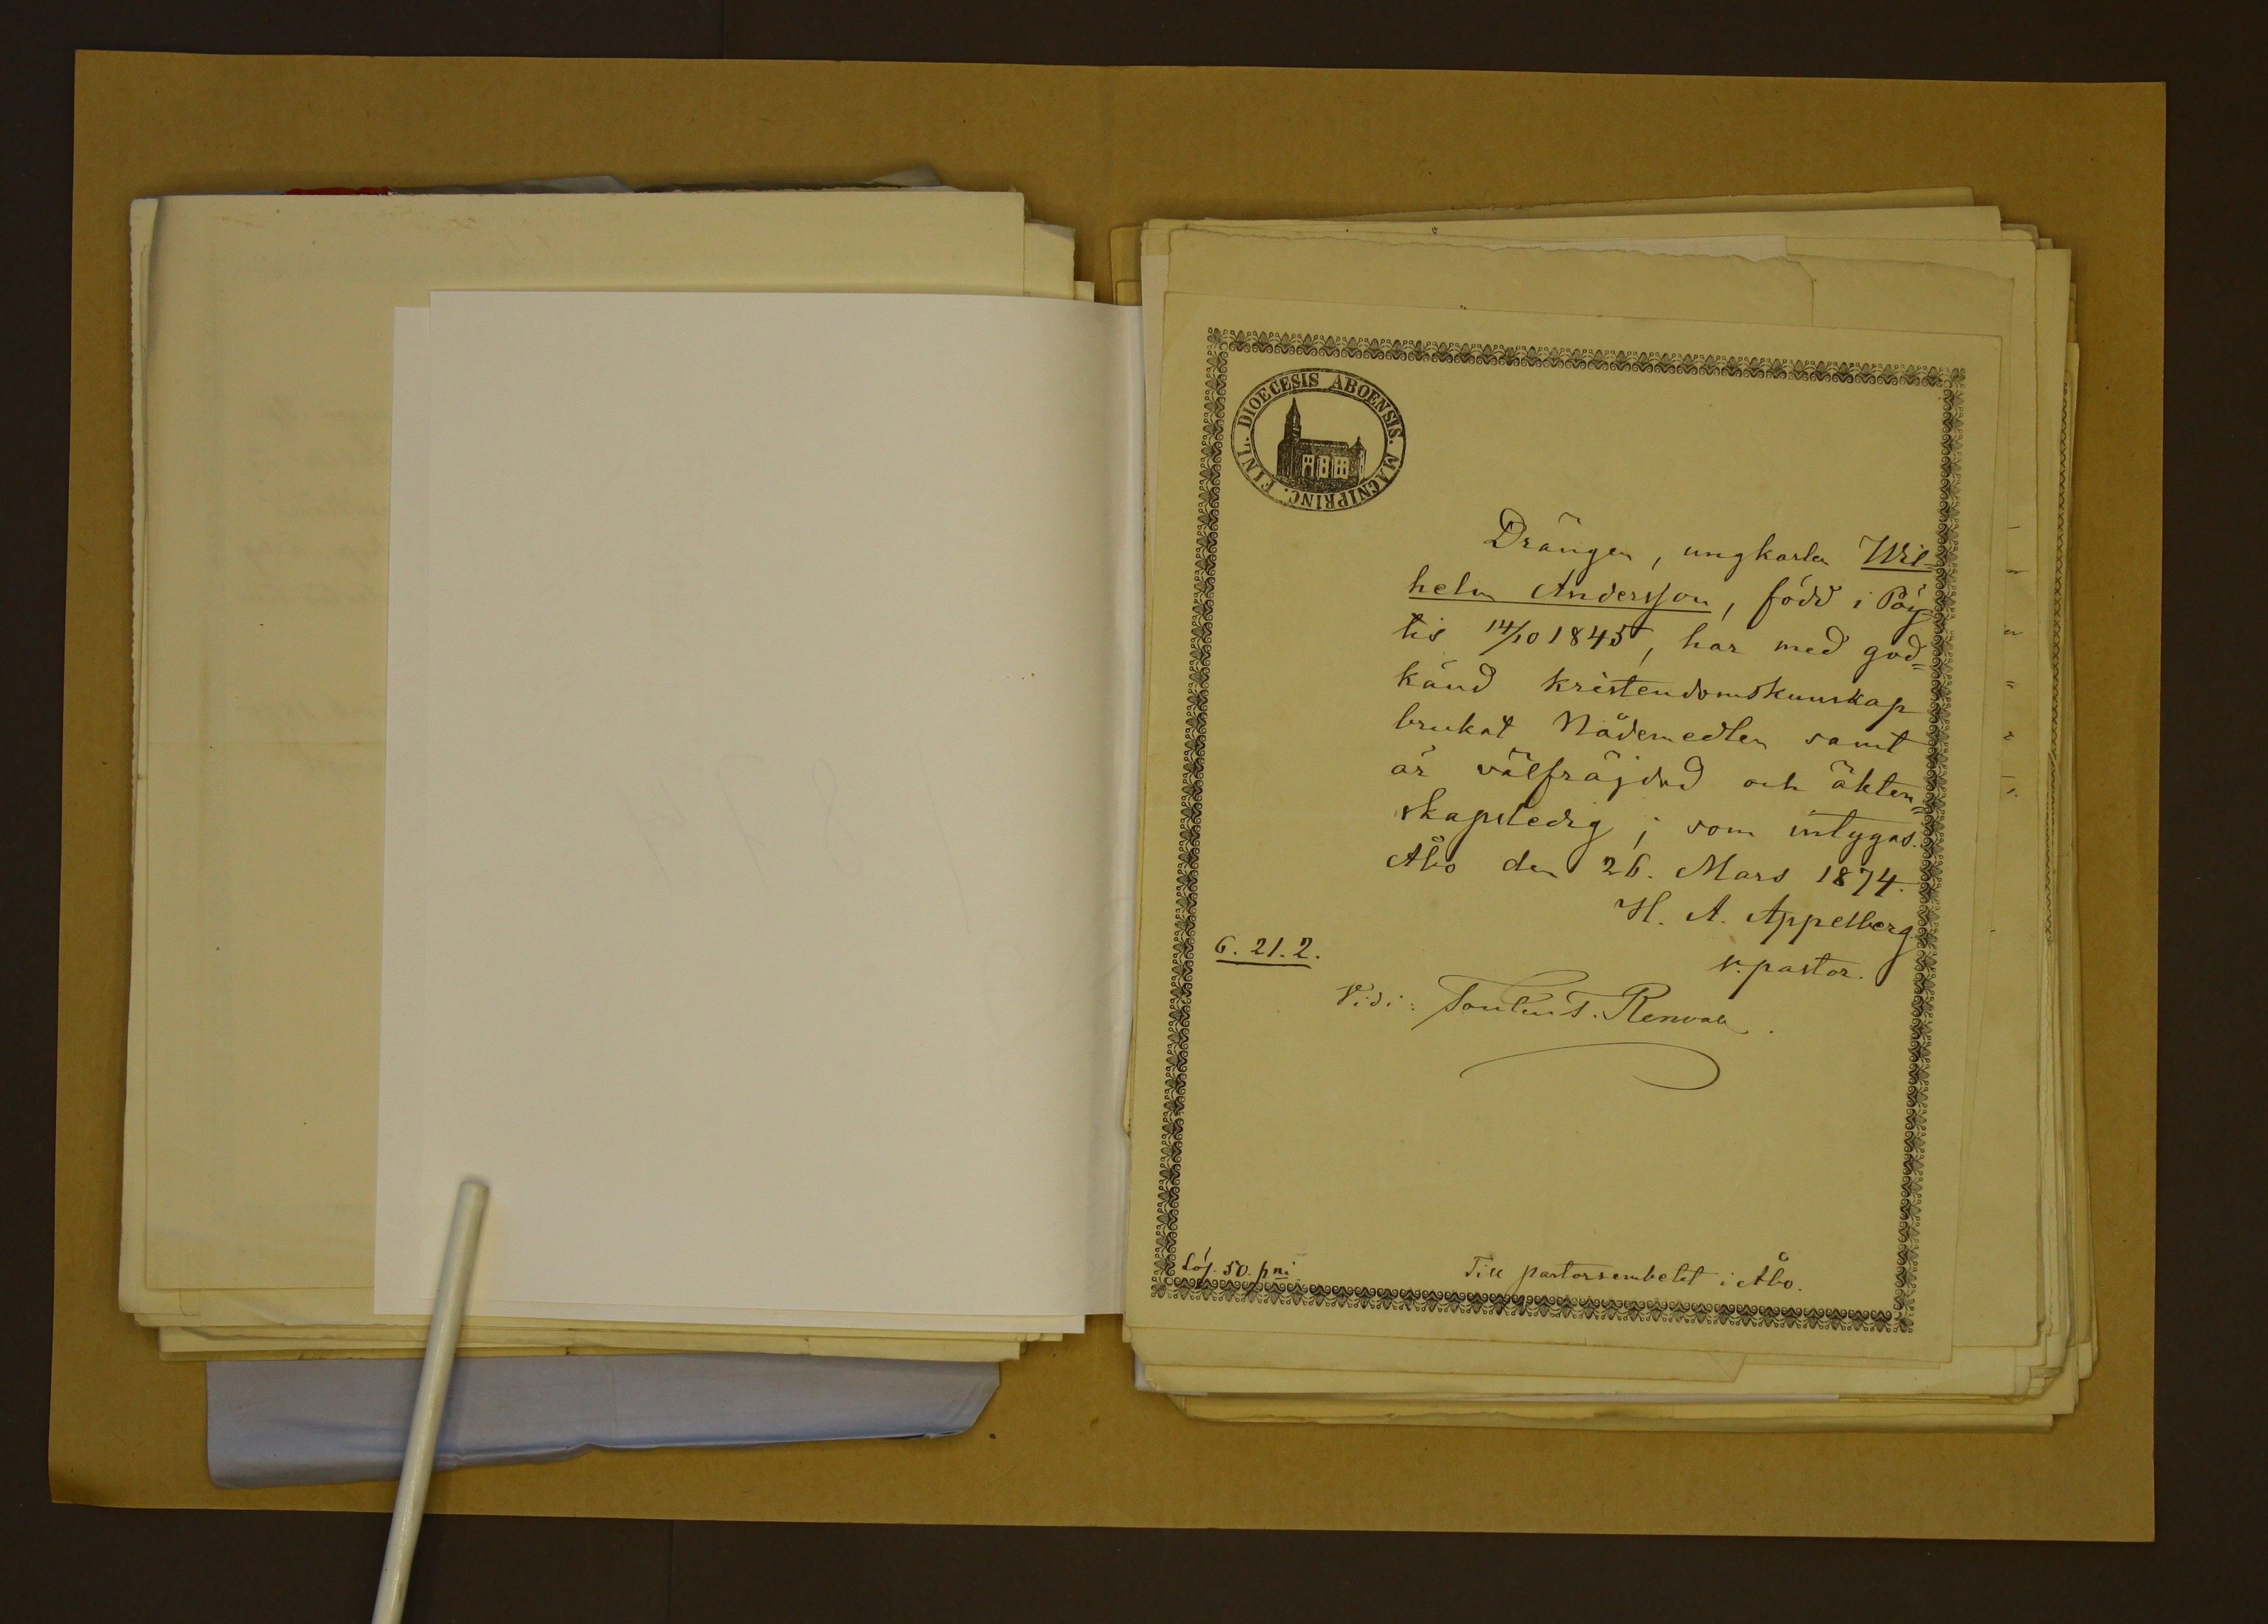 DIOECESIS ABOENSIS. MAGNIPRINC. FINL.
Drängen, ungkarlen Wil-
helm Andersson, född i Pöy-
tis 14/10 1845, har med god=
känd kristendomskunskap
brukat Nådemedlen samt
är välfräjdad och äkten=
skapsledig; som intygas.
Åbo den 26. Mars 1874.
H. A. Appelberg.
v. pastor.
6. 21. 2.
Vidi: T. Renvall.
Lös. 50. pni
Till pastorsembetet i Åbo.